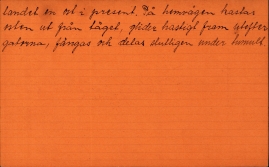 landet en ost i present. På hemvägen kastas
osten ut från tåget, glider hastigt fram utefter
gatorna, fångas och delas slutligen under tumult.